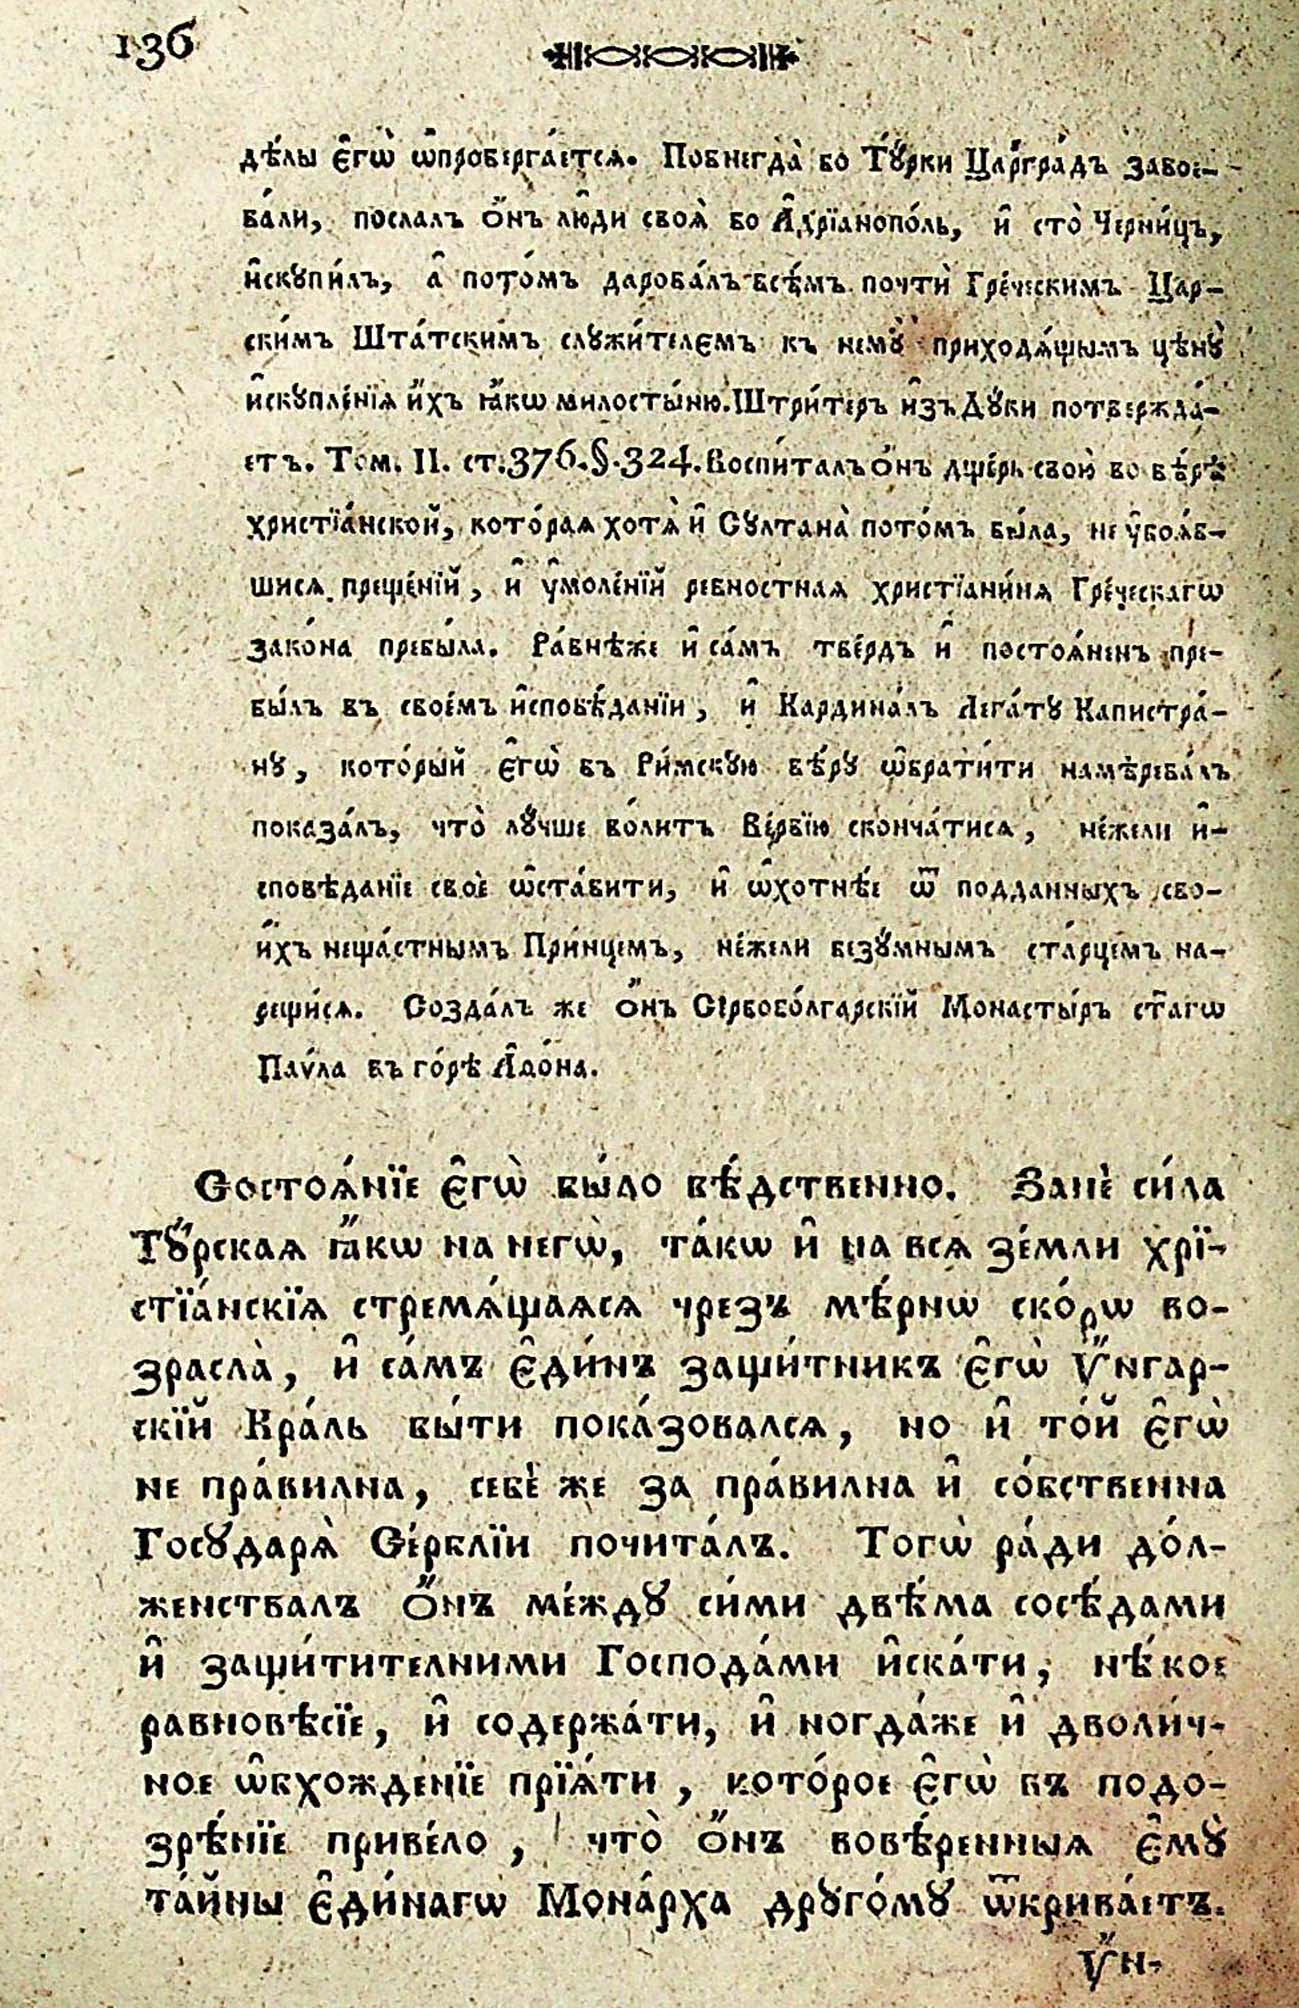 136
дѣ́лы є҆гѡ̀ ѡ҆провергáетсѧ. Повнегдà во Тꙋ́рки Цáргрáдъ завое-
вáли, послалъ ѻ҆́нъ лю҆́ди своѧ̀ во А҆дрїанопóль, и҆ стò Черни́цъ,
и҆скупи́лъ, а҆ потóмъ даровáлъ всѣ́мъ почтѝ Грéческимъ Цар-
ски́мъ Штáтскимъ служи́телємъ къ немꙋ̀ приходѧ́щымъ цѣ́нꙋ̀
и҆скуплéнїѧ и҆́хъ ꙗ҆́кѡ милосты́ню. Штри́теръ и҆зъ Дꙋ́ки потвержда́-
етъ. Том. II. ст: 376. §. 324. Воспи́талъ ѻ҆́нъ дщéрь свою̀ во вѣ́рѣ
христїáнской, котóраѧ хотѧ̀ и҆ Сꙋлтанà потóмъ бы́ла, не ᲂу҆боѧ́в-
шисѧ прещéнїй, и҆ ᲂу҆молéнїй ревностнаѧ христїани́нѧ Грéческагѡ
закóна пребы́ла. Рáвнѣже и҆ сáмъ твéрдъ и҆ постоѧ́ненъ пре-
бы́лъ въ своéмъ и҆сповѣ́данїи, и҆ Кардинáлъ Легáту Капистрá-
ну, котóрый є҆гѡ̀ въ Ри́мскую вѣ́ру ѡ҆брати́ти намѣревáлъ
показáлъ, чтò лꙋ́чше вóлитъ Вéрвїю скончáтисѧ, нéжели и҆-
сповѣ́данїе своѐ ѡ҆стáвити, и҆ ѡ҆хотнѣ́е ѿ подданныхъ сво-
и́хъ нещáстнымъ При́нцемъ, нéжели безꙋ́мнымъ стáрцемъ на-
рещи́сѧ. Создáлъ же ѻ҆́нъ Сербобóлгарскїй Монасты́ръ ст҃агѡ
Паѵ́ла въ гóрѣ А҆дóна.
Состоѧ́нїе є҆гѡ̀ бы́ло бѣ́дственно. Занѐ си́ла
Тꙋ́рскаѧ ꙗ҆́кѡ на негѡ̀, тáкѡ и҆ на всѧ зéмли хрї-
стїáнскїѧ стремѧ́щаѧсѧ чрезъ мѣ́рнѡ скóрѡ во-
зраслà, и҆ сáмъ є҆ди́нъ защи́тникъ є҆гѡ̀ Ѵ҆́нгар-
скїй Крáль бы́ти покáзовалсѧ, но и҆ тóй є҆гѡ̀
не прáвилна, себѐ же за прáвилна и҆ сóбственна
Госꙋдарѧ̀ Сéрблїи почитáлъ. Тогѡ̀ рáди дóл-
женствалъ ѻ҆́нъ мéждꙋ си́ми двѣ́ма сосѣ́дами
и҆ защи́тителними Господáми и҆скáти, нѣ́кое
равновѣ́сїе, и҆ содержáти, и҆ ногдáже и҆ дволи́ч-
ное ѡ҆бхождéнїе прїѧ́ти, котóрое є҆гѡ̀ въ подо-
зрѣ́нїе привéло, чтò ѻ҆́нъ вовѣ́ренныѧ є҆мꙋ̀
тáйны є҆ди́нагѡ Монáрха дрꙋгóмꙋ ѿкривáетъ.
Ѵ҆́н-